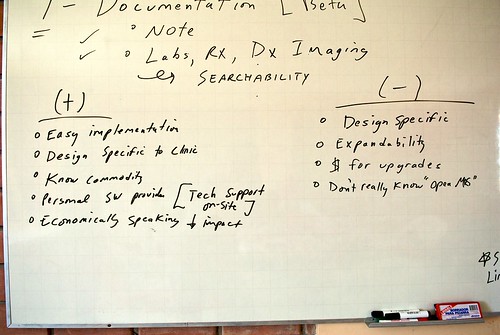 1 - Documentation [Beta]
= ✓ ° Note
✓ ° Labs, Rx, Dx Imaging
↪ Searchability
(+)
o Easy implementation
o Design Specific to Clinic
o Know commodity
o Personal SW provider [Tech Support on-site]
o Economically speaking ↓ impact
(-)
o Design Specific
o Expandability
o $ for upgrades
o Don't really know "Open MRS"
$
Lin